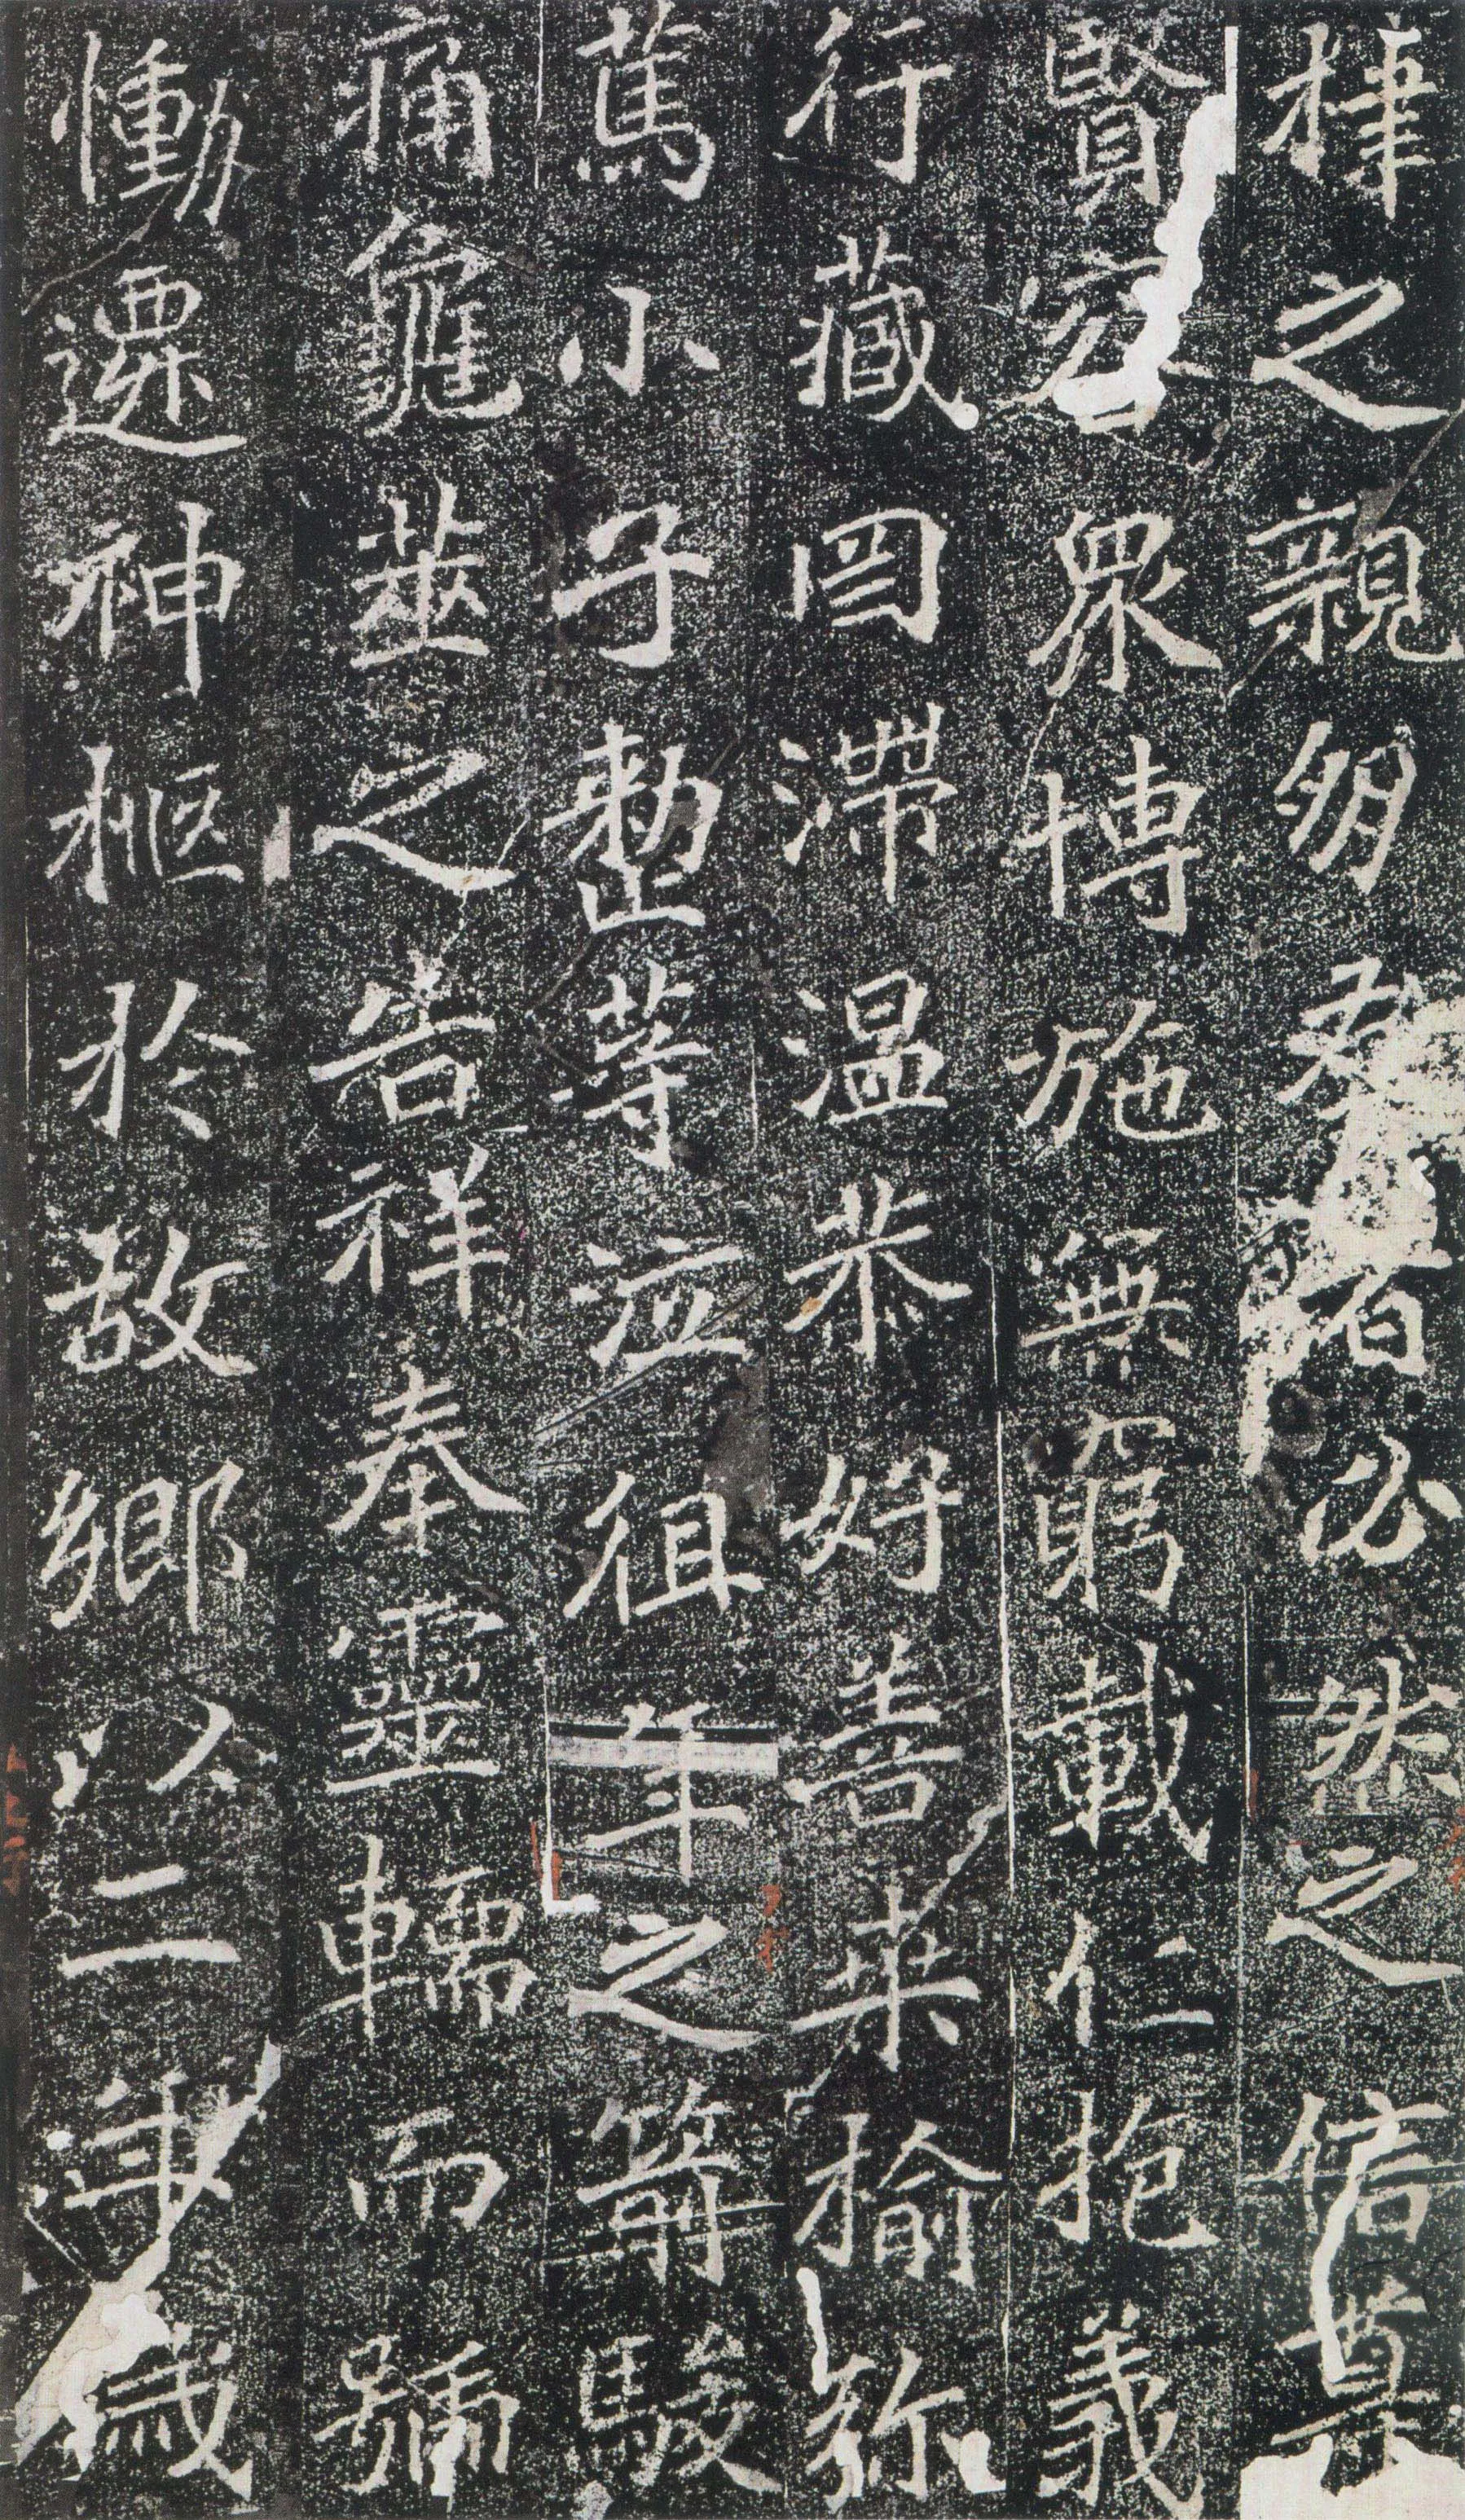 之親朋者必然之信尊
賢容衆博施無窮載仁抱義
行藏罔滯温恭好善桒榆弥
篤小子整等泣徂年之箭駿
痛龜筮之告祥奉靈轜而號
慟遷神柩於故鄉以二年歲